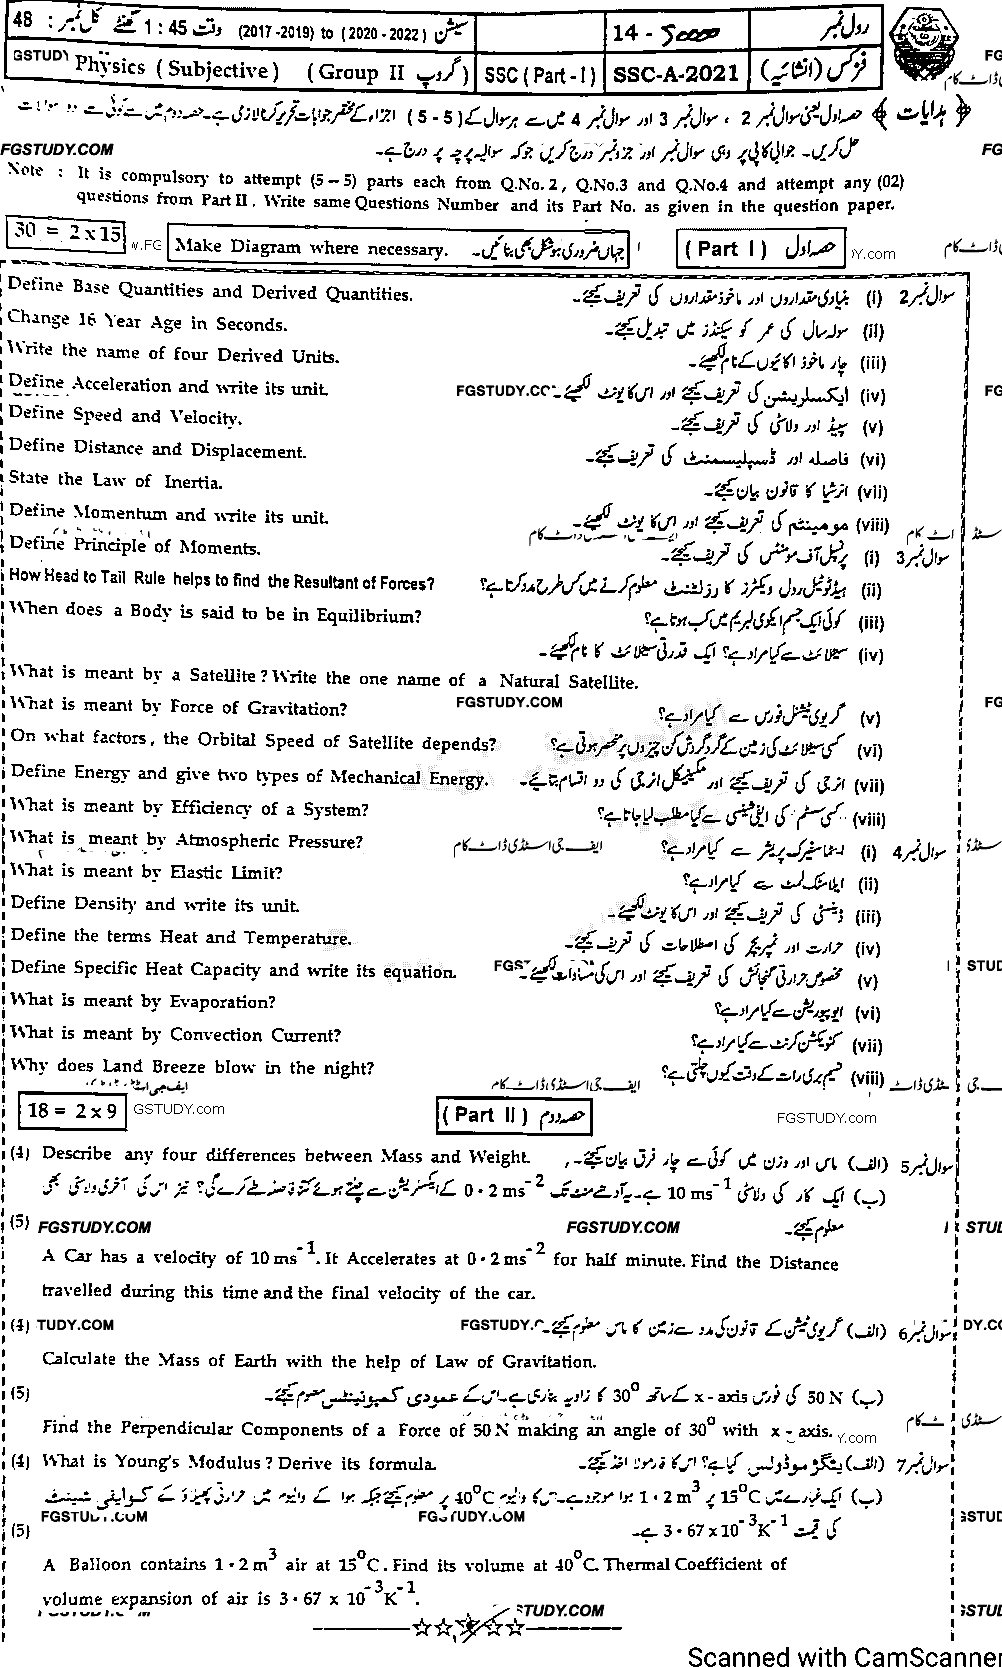 رول نمبر 14 - 5000 سیشن (2020 - 2022) to (2017 -2019) وقت 1 : 45 گھنٹے کل نمبر : 48
فزکس (انشائیہ) SSC-A-2021 SSC (Part - I) (Group II گروپ) Physics (Subjective) GSTUDY
﴿ ہدایات ﴾ حصہ اول یعنی سوال نمبر 2 ، سوال نمبر 3 اور سوال نمبر 4 میں سے ہر سوال کے (5 - 5) اجزاء کے مختصر جوابات تحریر کرنا لازمی ہے۔ حصہ دوم میں سے کوئی سے دو سوالات
FGSTUDY.COM حل کریں۔ جوابی کاپی پر وہی سوال نمبر اور جزو نمبر درج کریں جو کہ سوالیہ پرچہ پر درج ہے۔
Note : It is compulsory to attempt (5 – 5) parts each from Q.No. 2 , Q.No.3 and Q.No.4 and attempt any (02)
questions from Part II . Write same Questions Number and its Part No. as given in the question paper.
30 = 2 x 15 Make Diagram where necessary. جہاں ضروری ہو شکل بھی بنائیں۔ (Part I) حصہ اول
Define Base Quantities and Derived Quantities. سوال نمبر 2 (i) بنیادی مقداروں اور ماخوذ مقداروں کی تعریف کیجئے۔
Change 16 Year Age in Seconds. (ii) سولہ سال کی عمر کو سیکنڈز میں تبدیل کیجئے۔
Write the name of four Derived Units. (iii) چار ماخوذ اکائیوں کے نام لکھیئے۔
Define Acceleration and write its unit. (iv) ایکسلریشن کی تعریف کیجئے اور اس کا یونٹ لکھیئے۔
Define Speed and Velocity. (v) سپیڈ اور ولاسٹی کی تعریف کیجئے۔
Define Distance and Displacement. (vi) فاصلہ اور ڈسپلیسمنٹ کی تعریف کیجئے۔
State the Law of Inertia. (vii) انرشیا کا قانون بیان کیجئے۔
Define Momentum and write its unit. (viii) مومینٹم کی تعریف کیجئے اور اس کا یونٹ لکھیئے۔
Define Principle of Moments. سوال نمبر 3 (i) پرنسپل آف مومنٹس کی تعریف کیجئے۔
How Head to Tail Rule helps to find the Resultant of Forces? (ii) ہیڈ ٹو ٹیل رول ویکٹرز کا رزلٹنٹ معلوم کرنے میں کس طرح مدد کرتا ہے؟
When does a Body is said to be in Equilibrium? (iii) کوئی ایک جسم ایکوی لبریم میں کب ہوتا ہے؟
(iv) سیٹلائٹ سے کیا مراد ہے؟ ایک قدرتی سیٹلائٹ کا نام لکھیئے۔
What is meant by a Satellite ? Write the one name of a Natural Satellite.
What is meant by Force of Gravitation? FGSTUDY.COM (v) گریوی ٹیشنل فورس سے کیا مراد ہے؟
On what factors, the Orbital Speed of Satellite depends? (vi) کسی سیٹلائٹ کی زمین کے گرد گردش کن چیزوں پر منحصر ہوتی ہے؟
Define Energy and give two types of Mechanical Energy. (vii) انرجی کی تعریف کیجئے اور مکینیکل انرجی کی دو اقسام بتائیے۔
What is meant by Efficiency of a System? (viii) کسی سسٹم کی ایفی شینسی سے کیا مطلب لیا جاتا ہے؟
What is meant by Atmospheric Pressure? ایف جی اسٹڈی ڈاٹ کام سوال نمبر 4 (i) ایٹماسفیرک پریشر سے کیا مراد ہے؟
What is meant by Elastic Limit? (ii) ایلاسٹک لمٹ سے کیا مراد ہے؟
Define Density and write its unit. (iii) ڈینسٹی کی تعریف کیجئے اور اس کا یونٹ لکھیئے۔
Define the terms Heat and Temperature. (iv) حرارت اور ٹمپریچر کی اصطلاحات کی تعریف کیجئے۔
Define Specific Heat Capacity and write its equation. (v) مخصوص حرارتی گنجائش کی تعریف کیجئے اور اس کی مساوات لکھیئے۔
What is meant by Evaporation? (vi) ایوپوریشن سے کیا مراد ہے؟
What is meant by Convection Current? (vii) کنویکشن کرنٹ سے کیا مراد ہے؟
Why does Land Breeze blow in the night? (viii) نسیم بری رات کے وقت کیوں چلتی ہے؟
ایف جی اسٹڈی ڈاٹ کام
18 = 2 x 9 GSTUDY.com (Part II) حصہ دوم FGSTUDY.com
(4) Describe any four differences between Mass and Weight. سوال نمبر 5 (الف) ماس اور وزن میں کوئی سے چار فرق بیان کیجئے۔
(ب) ایک کار کی ولاسٹی 10 ms⁻¹ ہے۔ یہ آدھے منٹ تک 0·2 ms⁻² کے ایکسلریشن سے چلتے ہوئے کتنا فاصلہ طے کرے گی؟ نیز اس کی آخری ولاسٹی بھی
(5) FGSTUDY.COM FGSTUDY.COM معلوم کیجئے۔
A Car has a velocity of 10 ms⁻¹. It Accelerates at 0·2 ms⁻² for half minute. Find the Distance
travelled during this time and the final velocity of the car.
(4) TUDY.COM سوال نمبر 6 (الف) گریوی ٹیشن کے قانون کی مدد سے زمین کا ماس معلوم کیجئے۔
Calculate the Mass of Earth with the help of Law of Gravitation.
(5) (ب) 50 N کی فورس x - axis کے ساتھ 30⁰ کا زاویہ بنا رہی ہے۔ اس کے عمودی کمپونینٹس معلوم کیجئے۔
Find the Perpendicular Components of a Force of 50 N making an angle of 30⁰ with x - axis.
(4) What is Young's Modulus ? Derive its formula. سوال نمبر 7 (الف) ینگز موڈولس کیا ہے؟ اس کا فارمولا اخذ کیجئے۔
(ب) ایک غبارے میں 15⁰C پر 1·2 m³ ہوا موجود ہے۔ اس کا والیوم 40⁰C پر معلوم کیجئے جبکہ ہوا کے والیوم میں حرارتی پھیلاؤ کے کوایفی شینٹ
(5) کی قیمت 3·67 x 10⁻³K⁻¹ ہے۔
A Balloon contains 1·2 m³ air at 15⁰C . Find its volume at 40⁰C. Thermal Coefficient of
volume expansion of air is 3·67 x 10⁻³K⁻¹.
STUDY.COM
Scanned with CamScanner